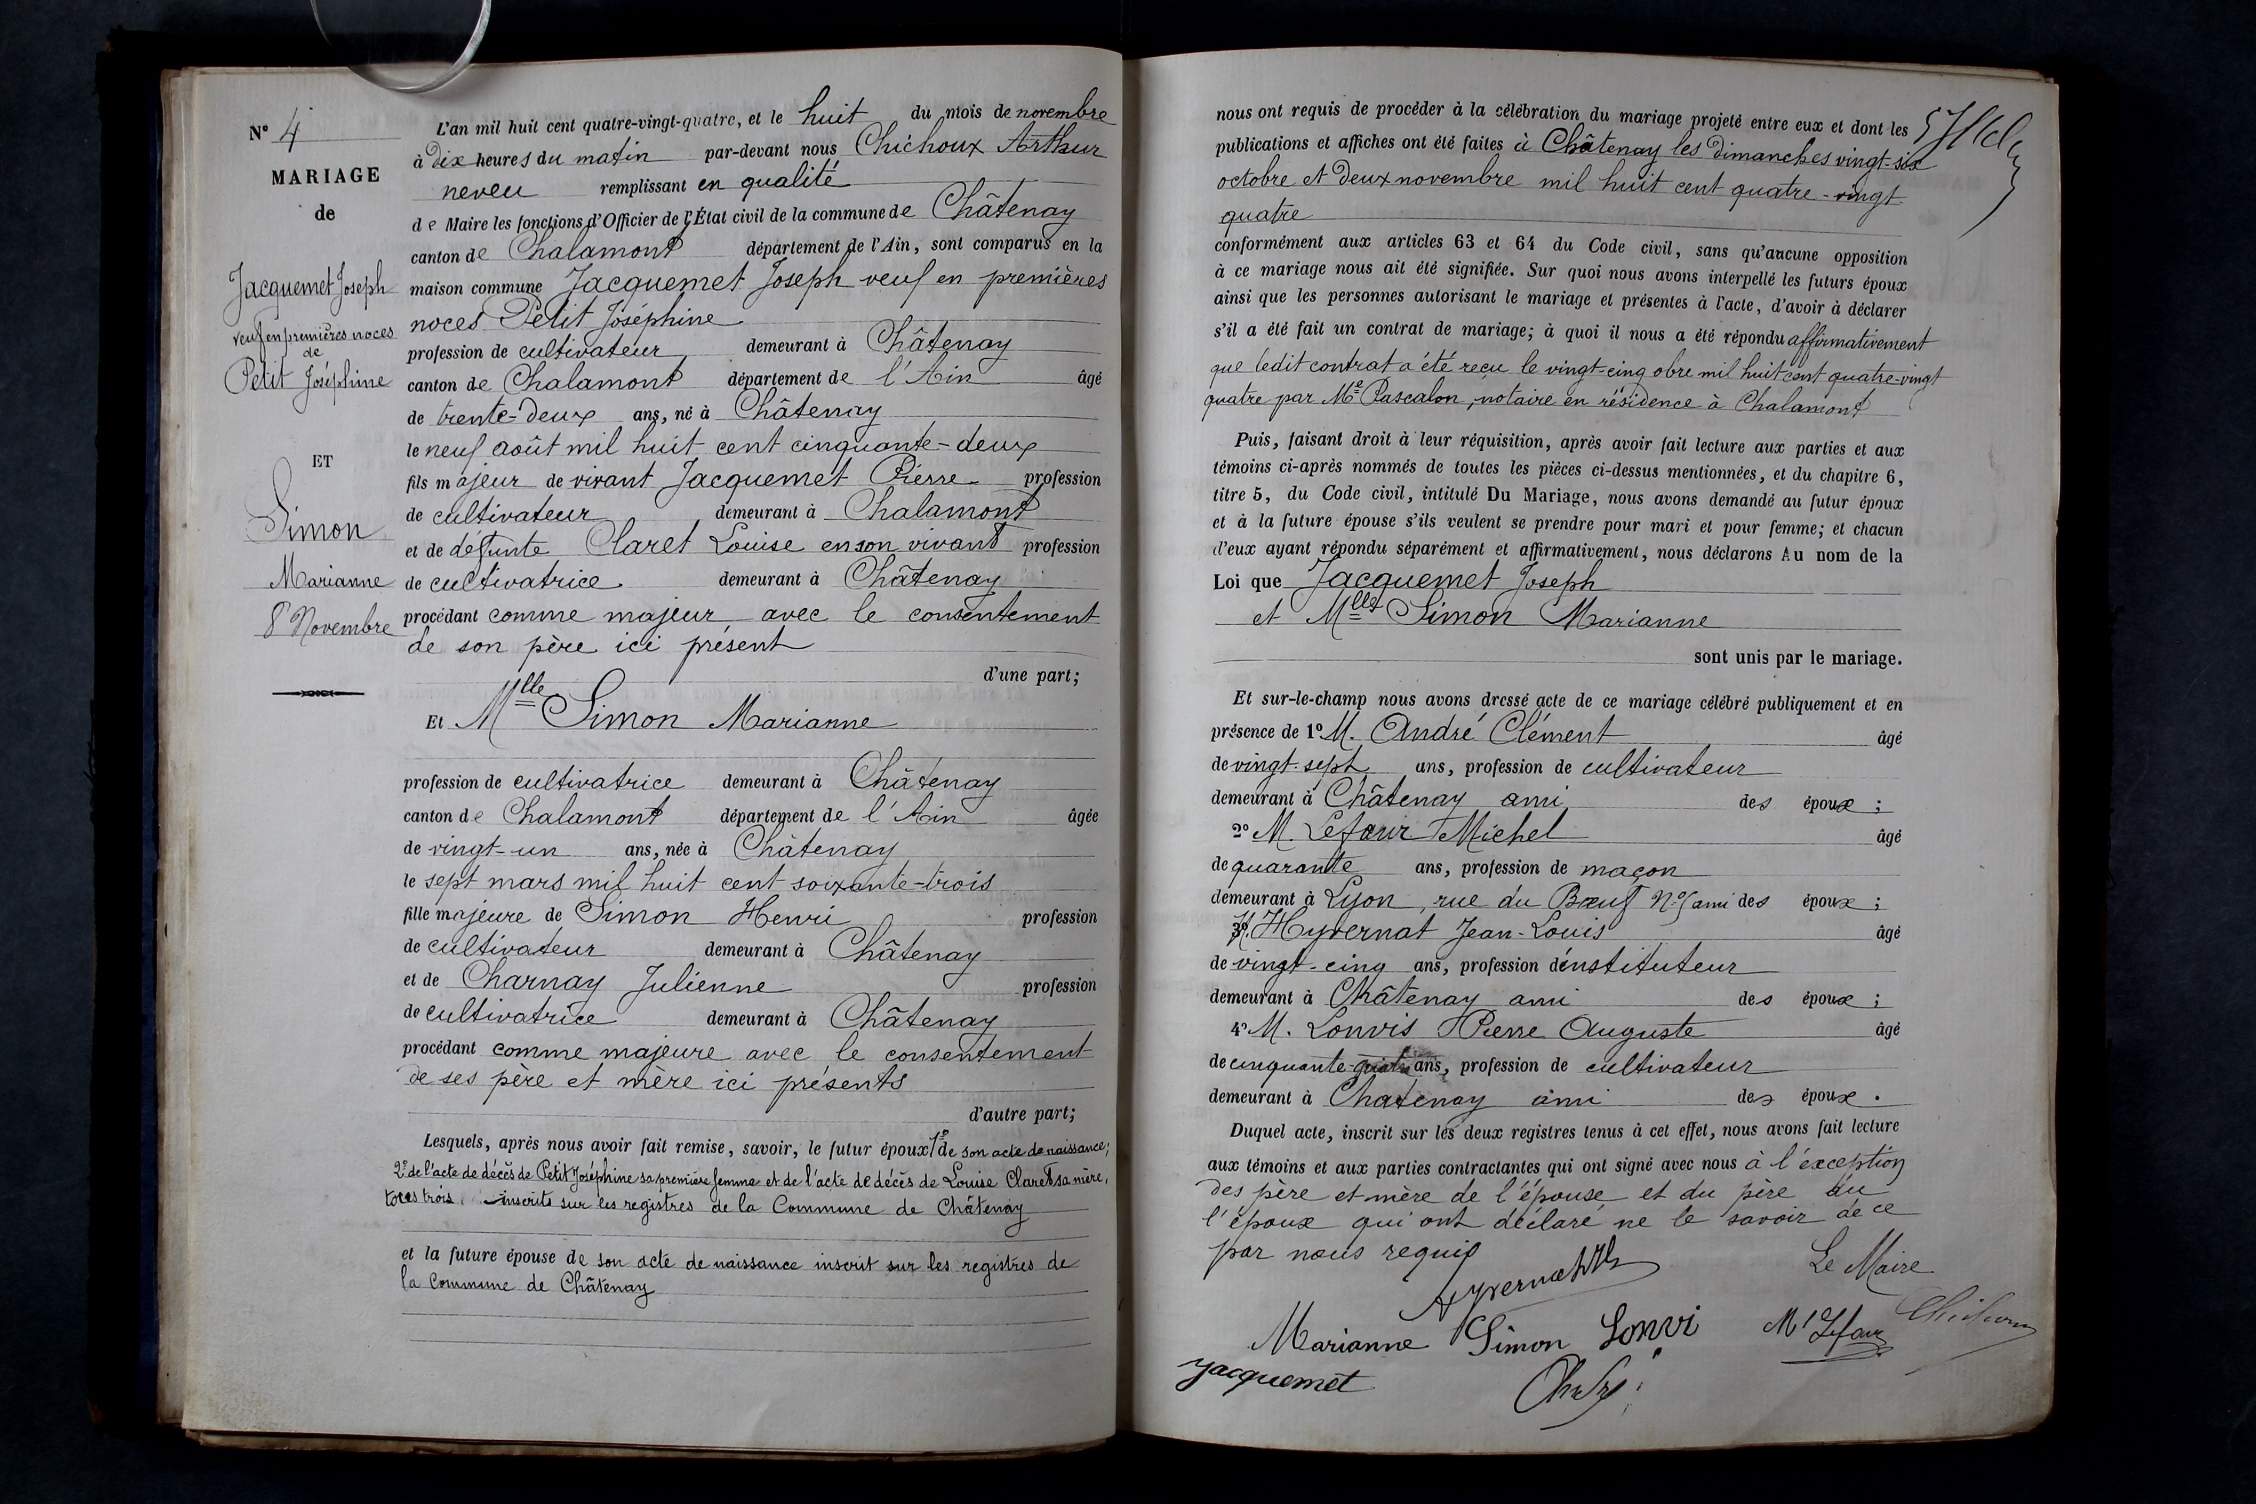 N° 4
MARIAGE
de
Jacquemet Joseph
veuf en premières noces
de
Petit Joséphine
ET
Simon
Marianne
8 Novembre
L'an mil huit cent quatre-vingt-quatre, et le huit du mois de novembre
à dix heures du matin par-devant nous Chichoux Arthur
neveu remplissant en qualité
de Maire les fonctions d'Officier de l'État civil de la commune de Châtenay
canton de Chalamont département de l'Ain, sont comparus en la
maison commune Jacquemet Joseph veuf en premières
noces Petit Joséphine
profession de cultivateur demeurant à Châtenay
canton de Chalamont département de l'Ain âgé
de trente-deux ans, né à Châtenay
le neuf août mil huit cent cinquante-deux
fils majeur de vivant Jacquemet Pierre profession
de cultivateur demeurant à Chalamont
et de defunte Claret Louise en son vivant profession
de cultivatrice demeurant à Châtenay
procédant comme majeur avec le consentement
de son père ici présent
d'une part;
Et Mlle Simon Marianne
profession de cultivatrice demeurant à Châtenay
canton de Chalamont département de l'Ain âgée
de vingt-un ans, née à Châtenay
le sept mars mil huit cent soixante-trois
fille majeure de Simon Henri profession
de cultivateur demeurant à Châtenay
et de Charnay Julienne profession
de cultivatrice demeurant à Châtenay
procédant comme majeure avec le consentement
de ses père et mère ici présents
d'autre part;
Lesquels, après nous avoir fait remise, savoir, le futur époux 1° de son acte de naissance;
2° de l'acte de décès de Petit Joséphine sa première femme et de l'acte de décès de Louise Claret sa mère,
tous trois inscrits sur les registres de la Commune de Châtenay
et la future épouse de son acte de naissance inscrit sur les registres de
la Commune de Châtenay
nous ont requis de procéder à la célébration du mariage projeté entre eux et dont les
publications et affiches ont été faites à Châtenay les dimanches vingt-six
octobre et deux novembre mil huit cent quatre-vingt
quatre
conformément aux articles 63 et 64 du Code civil, sans qu'aucune opposition
à ce mariage nous ait été signifiée. Sur quoi nous avons interpellé les futurs époux
ainsi que les personnes autorisant le mariage et présentes à l'acte, d'avoir à déclarer
s'il a été fait un contrat de mariage; à quoi il nous a été répondu affirmativement
que ledit contrat a été reçu le vingt-cinq obre mil huit cent quatre-vingt
quatre par Me Pascalon, notaire en résidence à Chalamont
Puis, faisant droit à leur réquisition, après avoir fait lecture aux parties et aux
témoins ci-après nommés de toutes les pièces ci-dessus mentionnées, et du chapitre 6,
titre 5, du Code civil, intitulé Du Mariage, nous avons demandé au futur époux
et à la future épouse s'ils veulent se prendre pour mari et pour femme; et chacun
d'eux ayant répondu séparément et affirmativement, nous déclarons Au nom de la
Loi que Jacquemet Joseph
et Mlle Simon Marianne
sont unis par le mariage.
Et sur-le-champ nous avons dressé acte de ce mariage célébré publiquement et en
présence de 1° M. André Clément âgé
de vingt-sept ans, profession de cultivateur
demeurant à Châtenay ami des époux;
2° M. Lefaur Michel âgé
de quarante ans, profession de maçon
demeurant à Lyon, rue du Bœuf N° 5 ami des époux;
3° M. Hyvernat Jean-Louis âgé
de vingt-cinq ans, profession d'instituteur
demeurant à Châtenay ami des époux;
4° M. Lonvis Pierre Auguste âgé
de cinquante-quatre ans, profession de cultivateur
demeurant à Chatenay ami des époux.
Duquel acte, inscrit sur les deux registres tenus à cet effet, nous avons fait lecture
aux témoins et aux parties contractantes qui ont signé avec nous à l'exception
des père et mère de l'épouse et du père du
l'époux qui ont déclaré ne le savoir de ce
par nous requis
Hyvernat
Le Maire
Marianne Simon Lonvi
Jacquemet